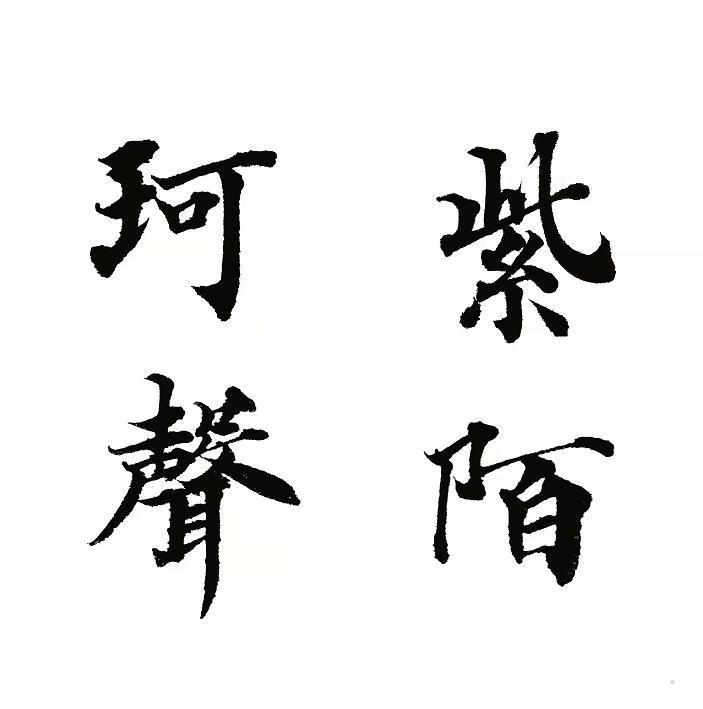 紫陌
珂聲